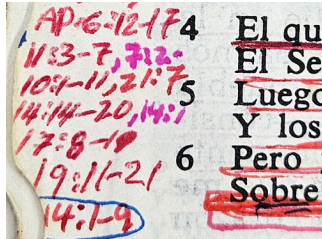 AP-6:12-17
11:3-7, 7:2-
10:1-11, 21:7
14:14-20, 14:1
17:8-18
19:11-21
14:1-9
4 El qu
El Se
5 Luego
Y los
6 Pero
Sobre